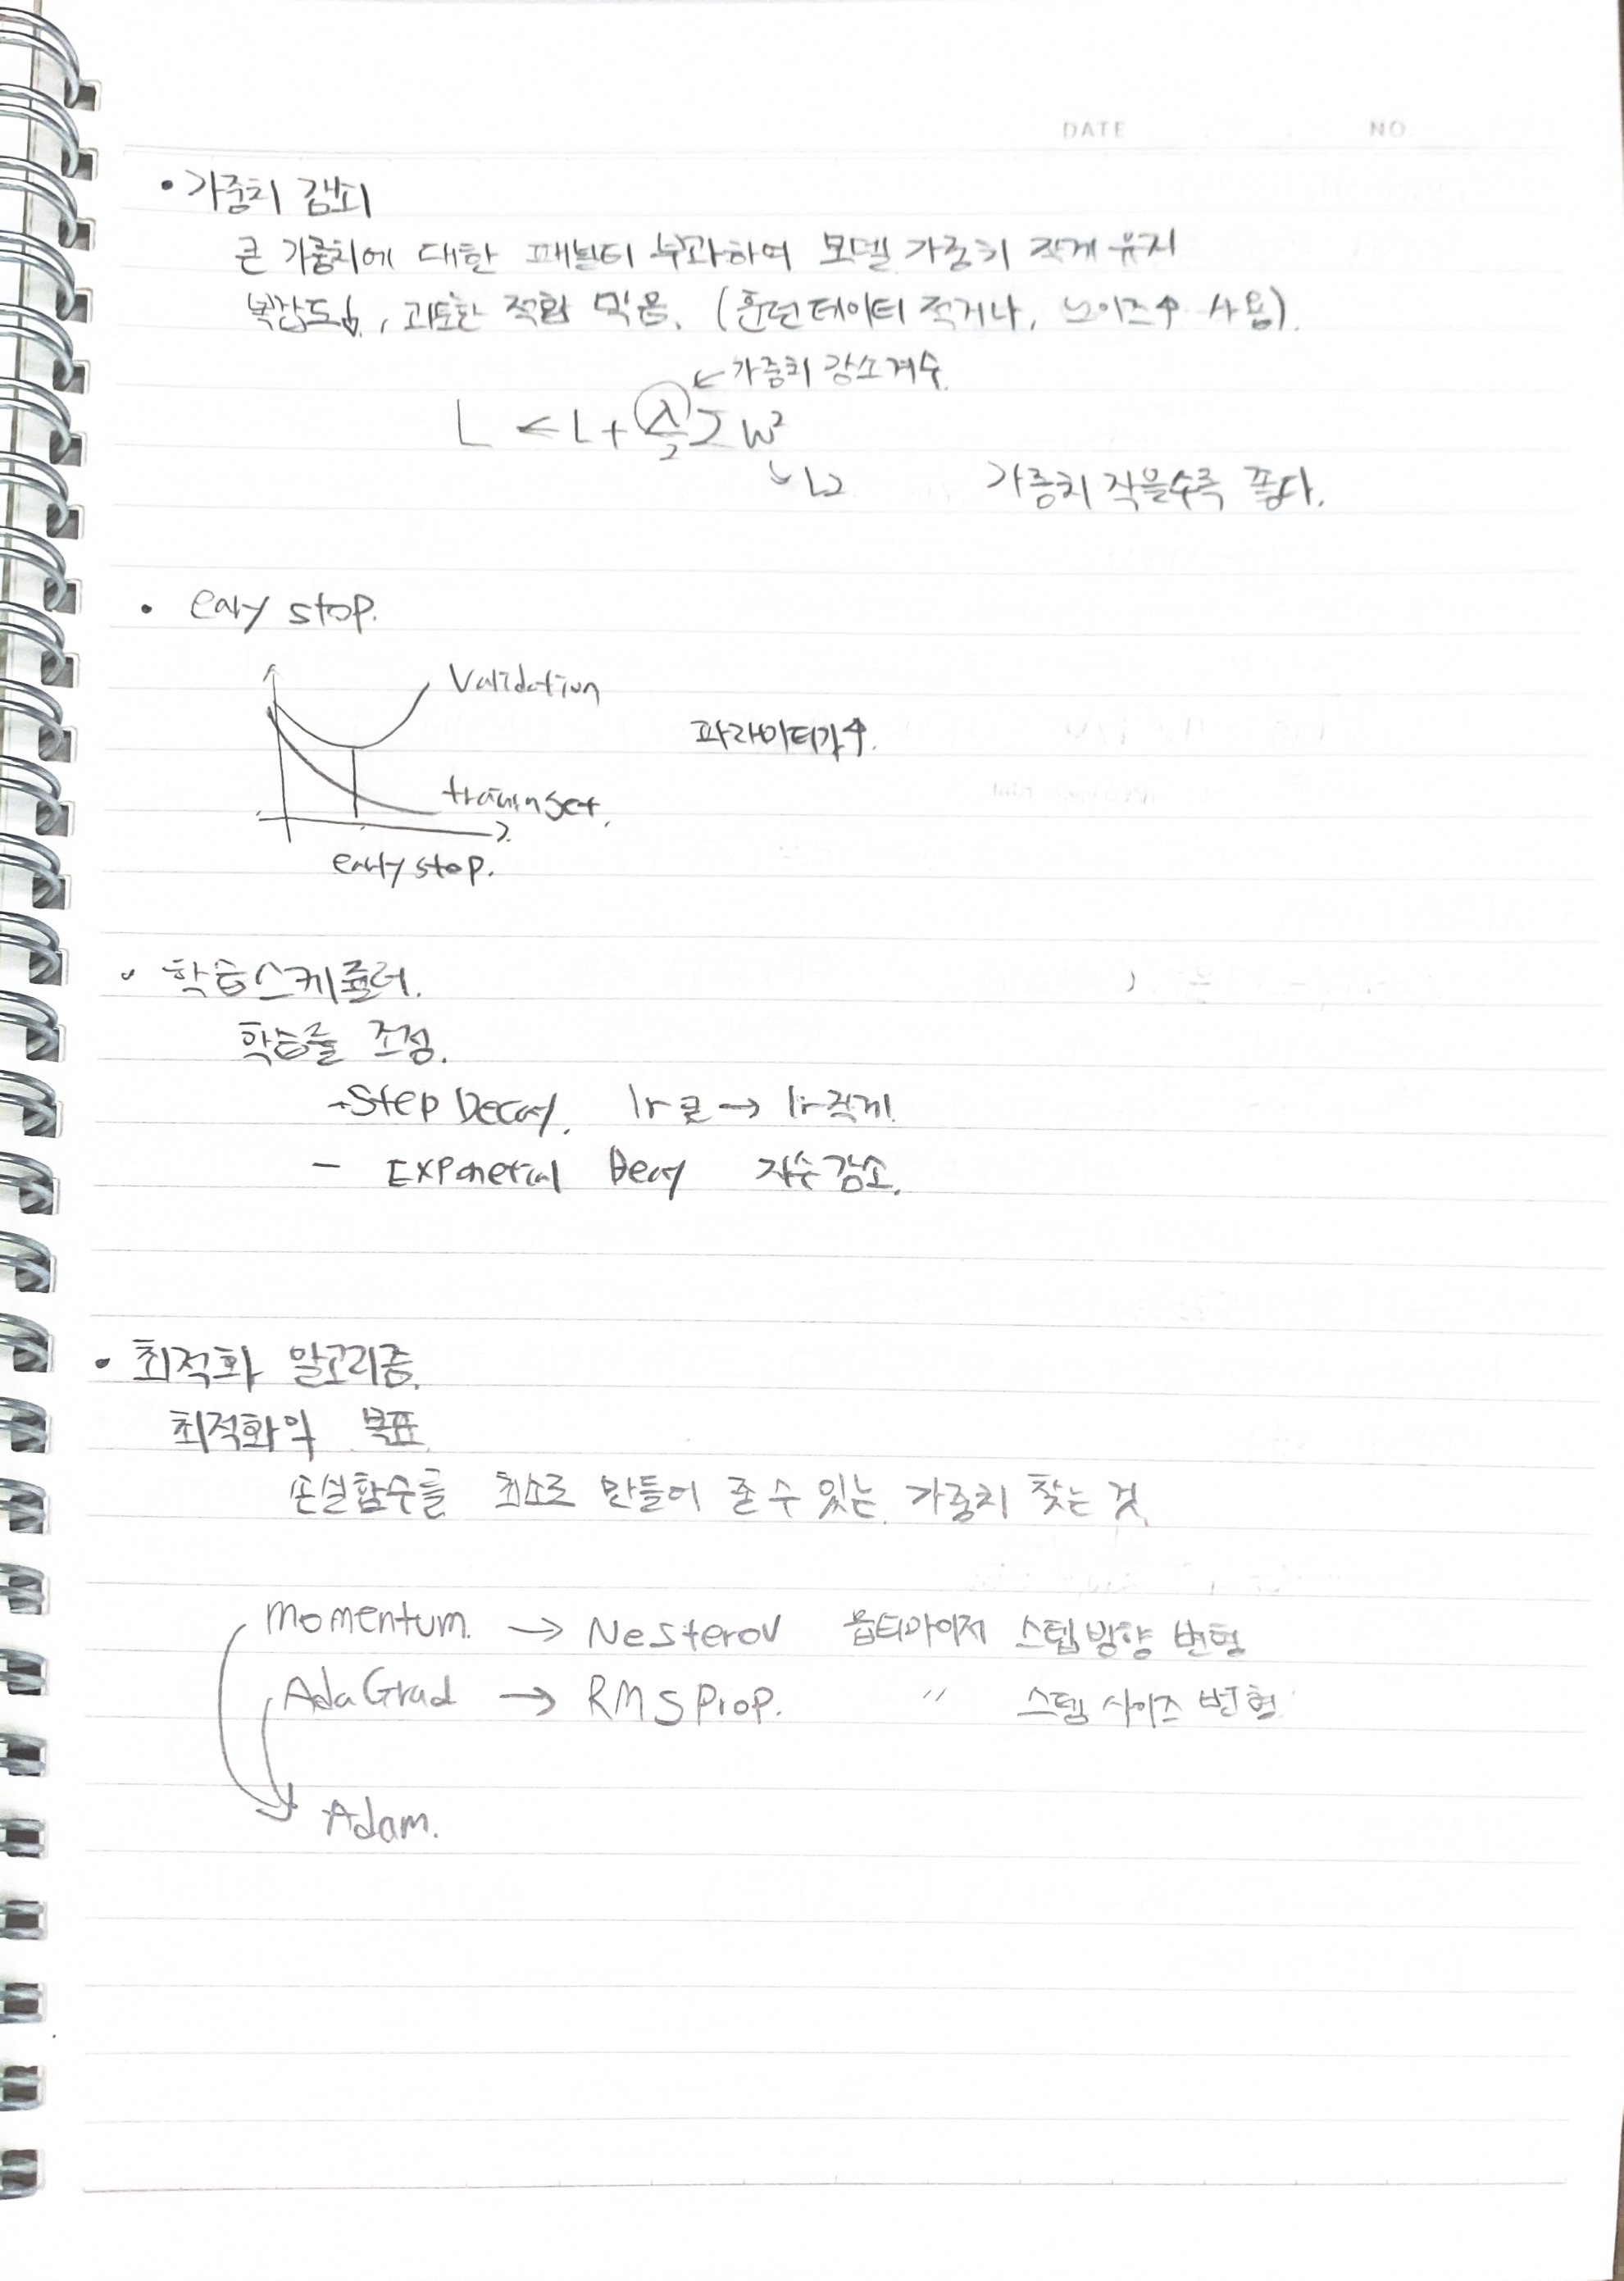 DATE NO.
• 가중치 감쇠
큰 가중치에 대한 패널티 부과하여 모델 가중치 작게 유지
복잡도↓, 과도한 적합 막음. (훈련데이터 적거나, 노이즈↑ 사용).
← 가중치 감소계수.
L ← L + λ/2 Σ W²
↘ L2 가중치 작을수록 좋다.
• eary stop.
Validation
파라미터가↑.
train set.
early stop.
• 학습스케쥴러.
학습률 조정.
- Step Decay. lr 큰 → lr 작게
- Exponetial Decay 지수감소.
• 최적화 알고리즘.
최적화의 목표
손실함수를 최소로 만들어 줄 수 있는 가중치 찾는 것.
Momentum. → Nesterov 옵티마이저 스텝방향 변형
AdaGrad → RMSProp. 〃 스텝 사이즈 변형
Adam.